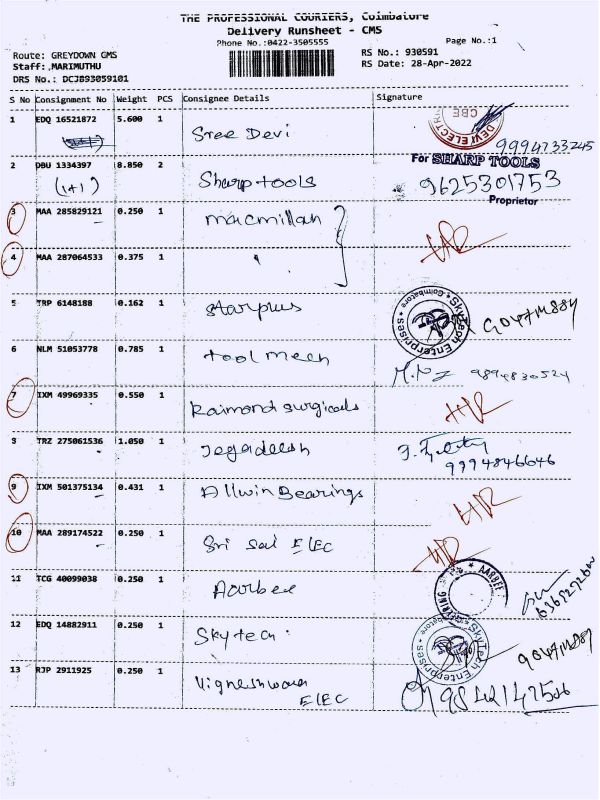 THE PROFESSIONAL COURIERS, Coimbatore
Delivery Runsheet - CMS
Phone No.:0422-3505555
Page No.:1
Route: GREYDOWN GMS
RS No.: 930591
Staff:,MARIMUTHU
RS Date: 28-Apr-2022
DRS No.: DCJB93059101
S No Consignment No Weight PCS Consignee Details Signature
1 EDQ 16521872 5.600 1 Sree Devi
DEVI ELECTR
CBE
9994733245
2 DBU 1334397 8.850 2 Sharp tools
(1+1)
For SHARP TOOLS
9625301753
Proprietor
3 MAA 285829121 0.250 1 macmillan
4 MAA 287064533 0.375 1 "
5 TRP 6148188 0.162 1 starplus
SkyTech Enterprises
Coimbatore
6 NLM 51053778 0.785 1 tool mech
9894830524
7 IXM 49969335 0.550 1 Raimond surgicals
8 TRZ 275061536 1.050 1 Jegadeesh
9994846646
9 IXM 501375134 0.431 1 Allwin Bearings
10 MAA 289174522 0.250 1 Sri Sai ELEC
11 TCG 40099038 0.250 1 Aarbee
AARBEE
12 EDQ 14882911 0.250 1 Skytech
SkyTech Enterprises
Coimbatore
13 RJP 2911925 0.250 1 Vigneshwara
ELEC
9842147506